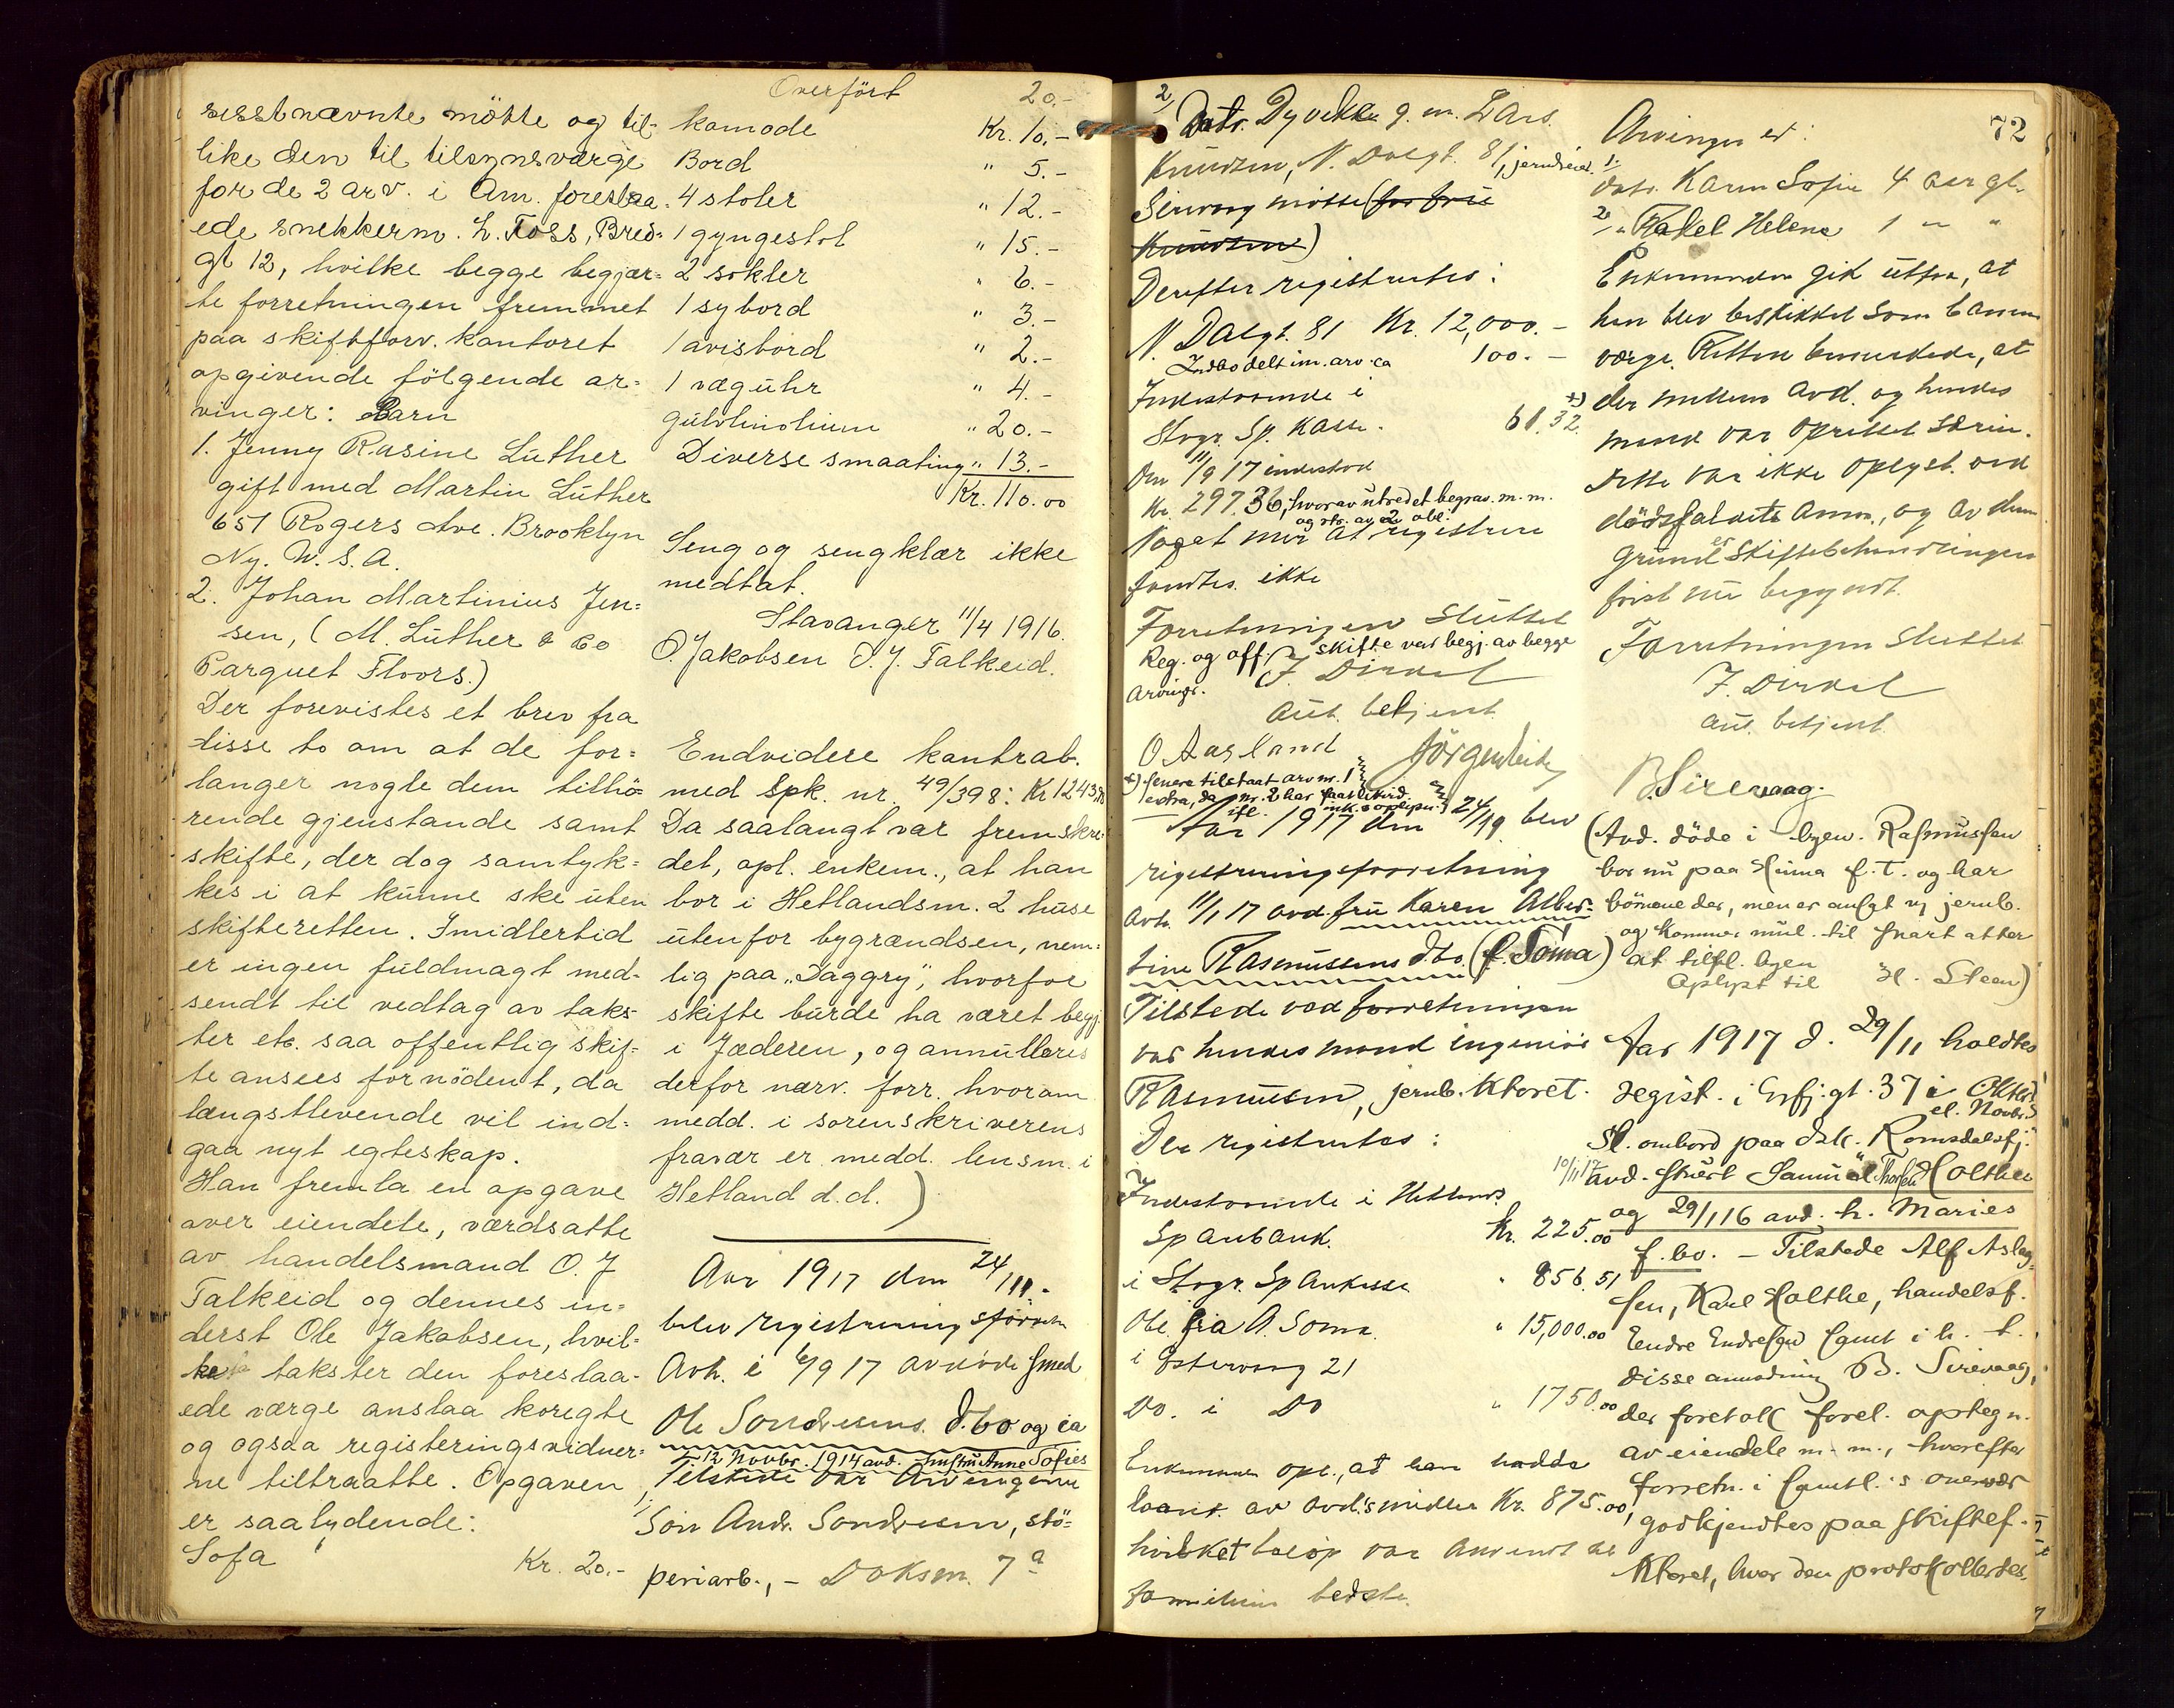 sisstnævnte mötte og til-
like den til tilsynsværge
for de 2 arv. i Am. foreslaa-
ede snekkerm. L. Foss, Bred-
gt 12, hvilke begge begjær-
te forretningen fremmet
paa skifteforv. kontoret
opgivende fölgende ar-
vinger: Barn
1. Jenny Rasine Luther
gift med Martin Luther
651 Rogers Ave. Brooklyn
Ny. U. S. A.
2. Johan Martinius Jen-
sen, (M. Luther & Co
Parquet Floors.)
Der forevistes et brev fra
disse to om at de for-
langer nogle dem tilhö-
rende gjenstande samt
skifte, der dog samtyk-
kes i at kunne ske uten
skifteretten. Imidlertid
er ingen fuldmagt med-
sendt til vedtag av taks-
ter etc. saa offentlig skif-
te ansees fornödent, da
længstlevende vil ind-
gaa nyt egteskap.
Han fremla en opgave
over eiendele, værdsatte
av handelsmand O. J
Falkeid og dennes in-
derst Ole Jakobsen, hvil-
ke takster den foreslaa-
ede værge anslaa koregte
og ogsaa registeringsvidner-
ne tiltraatte. Opgaven
er saalydende:
Sofa Kr. 20.-
Overfört 20.-
komode Kr. 10.-
Bord " 5.-
4 stoler " 12.-
1 gyngestol " 15.-
2 sokler " 6.-
1 sybord " 3.-
1 avisbord " 2.-
1 væguhr " 4.-
gulvlinolium " 20.-
Diverse smaating " 13.-
Kr. 110.00
Seng og sengklær ikke
medtat.
Stavanger 11/4 1916.
O. Jakobsen O. J. Falkeid.
Endvidere kontrab.
med Spk. nr. 49/398: Kr 1243
Da saalangt var fremskre-
det, opl. enkem., at han
bor i Hetlandsm. 2 huse
utenfor bygrændsen, nem-
lig paa "Daggry", hvorfor
skifte burde ha været begj.
i Jæderen, og annulleres
derfor nærv. forr. hvorom
medd. i sorenskriverens
fravær er medd. lensm. i
Hetland d.d. )
Aar 1917 den 24/11.
blev registrerings
Avh. i 6/9 17 avdöde smed
Ole Sondresens d.bo og ca
12 Novbr. 1914 avd. hustru Anne Sofies
Tilstede var Arvingerne
1. Sön Andr. Sondresen, stö-
periarb., - Doksm. 7 a
2, Datr. Dyvekke g. m. Lars
Knudsen, N. Dalgt. 81, jernb
Sirevaag mötte (for fru
Knudsen)
Derefter registrertes:
N. Dalgt. 81 Kr. 12,000.-
Indbo delt im. arv. ca 100.-
Indestaaende i
Stvgr. Sp. Kasse. 61.32. x)
Den 11/9 17 indestod
Kr. 297.36, hvorav utredet begrav. m.m.
Noget mer at registrere
fandtes ikke
Forretningen sluttet
Reg. og off. skifte var begj. av begge
arvingr. J. Dirdal
Aut. betjent
O Aasland
x) senere tilstaat arv nr. 1
Aar 1917 den 24/11 blev
registreringsforretning
Avh. 11/1 17 avd. fru Karen Alber-
tine Rasmussens dbo. (f. Soma)
Tilstede ved forretningen
var hendes mand ingeniör
Rasmussen, jernb. Ktoret.
Der registrertes:
Indestaaende i Hetlands
Sp arebank. Kr. 225.00
i Stvgr. Sp arekasse " 856.51
Obl. fra A. Soma " 15,000.00
i Östervaag 21
Do. i Do " 1750.00
Enkemanden opl., at han hadde
laant av avd.s midler Kr. 875.00,
hvilket belöp var anvendt til
familiens bedste.
72
Arvinger er:
1. datr. Karen Sofie 4 aar gl.
2. " Rakel Helene 1 " "
Enkemanden gik ut fra, at
han blev beskikket som barnenes
værge. Retten bemerkede, at
der mellem avd. og hendes
mand var oprettet særeie.
Dette var ikke oplyst ved
dödsfaldets anm., og av den
grund er skiftebehandlingen
först nu begyndt.
Forretningen sluttet
J. Dirdal
aut. betjent
B. Sirevaag.
(Avd. döde i byen. Rasmussen
bor nu paa Huma f. T. og har
börnene der, men er ansat v/ jernb.
og kommer mul. til snart atter
at tilfl. byen
Oplyst til H. Steen)
Aar 1917 d. 29/11 holdtes
regist. i Erfj.gt. 37 i Oktbr
el. Novbr.
Sl. ombord paa dsk. Romsdalsfj.
10/11 17 avd. Samuel Holthes
og 29/1 16 avd. h. Maries
f. bo. - Tilstede Alf Aslag-
sen, Karl Holthe, handelsf.
Endre Endresen samt i h. t.
disse anmodning B. Sirevaag,
der foretok forel. optegn.
av eiendele m. m., hvorefter
forretn. i samtl.s overvær
godkjendtes paa skiftef.
Ktoret, hvor den protokollertes.